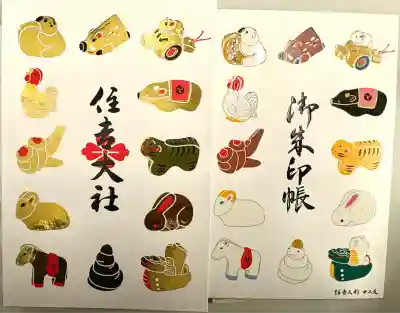 住吉大社
御朱印帳
住吉人形 十二支